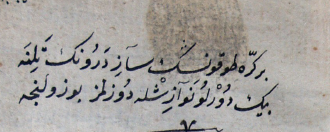 بر کره طوقونسك ساز درونك تلنه
بيك دورلو نوازشله دوزلمز بوزولنجه